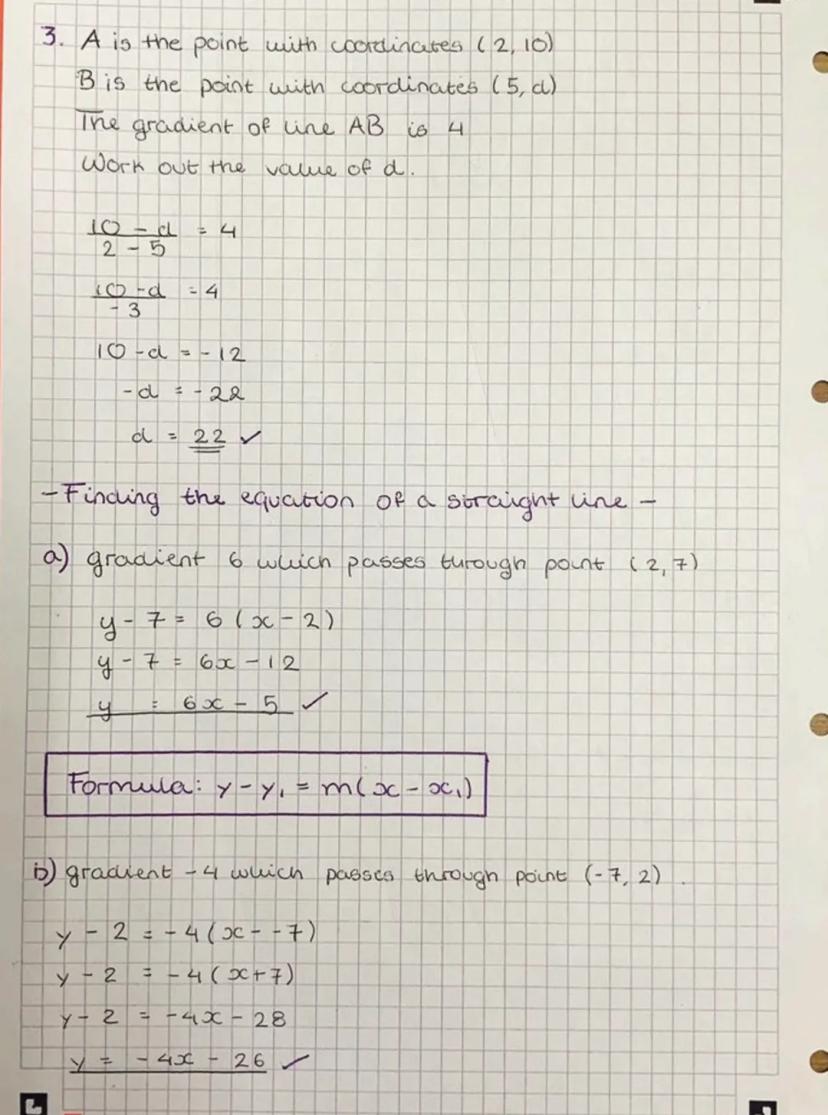 3. A is the point with coordinates (2, 10)
B is the point with coordinates (5, d)
The gradient of line AB is 4
Work out the value of d.
10 - d / 2 - 5 = 4
10 - d / -3 = 4
10 - d = -12
-d = -22
d = 22 ✓
- Finding the equation of a straight line -
a) gradient 6 which passes through point (2, 7)
y - 7 = 6(x - 2)
y - 7 = 6x - 12
y = 6x - 5 ✓
Formula: y - y₁ = m(x - x₁)
b) gradient -4 which passes through point (-7, 2).
y - 2 = -4(x - -7)
y - 2 = -4(x + 7)
y - 2 = -4x - 28
y = -4x - 26 ✓